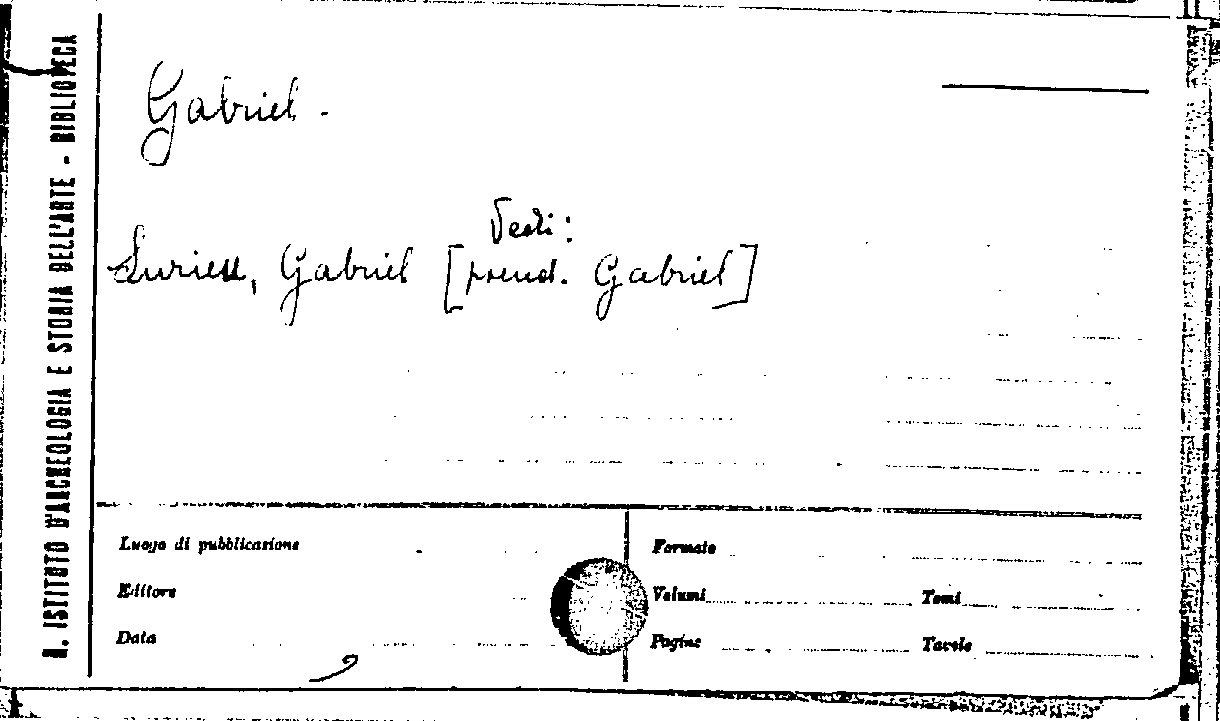 R. ISTITUTO D'ARCHEOLOGIA E STORIA DELL'ARTE - BIBLIOTECA
Gabriel.
Vedi:
Gabriel [pseud. Gabriel]
Luogo di pubblicazione
Editore
Data
Formato
Volumi Tomi
Pagine Tavole